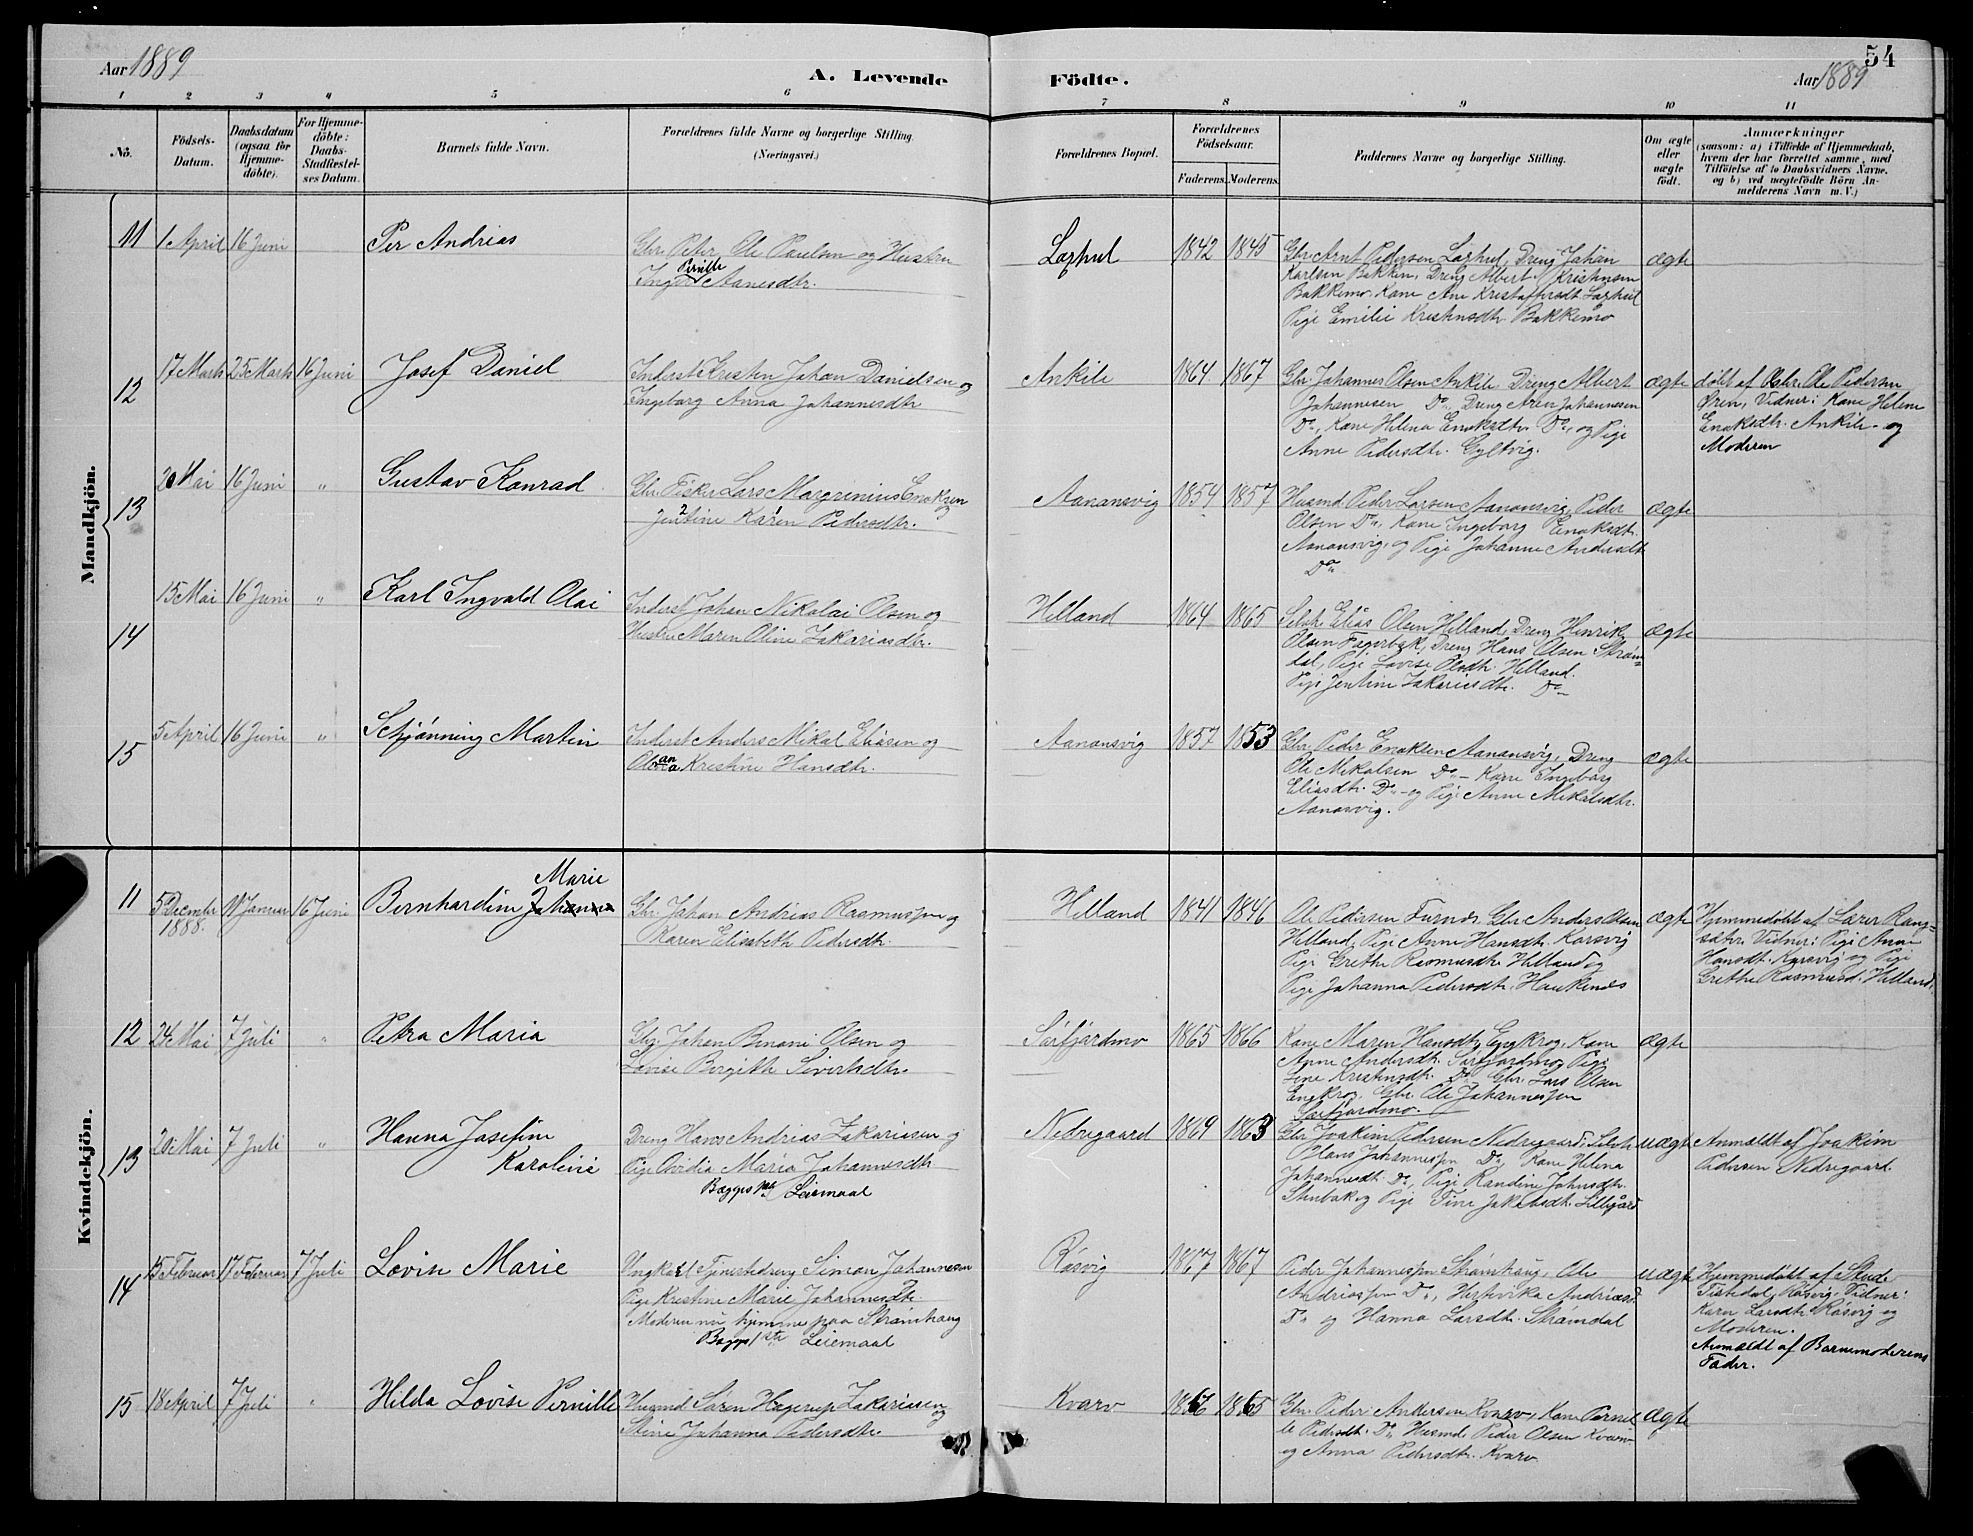 54
Aar 1889
A. Levende
Födte.
Aar 1889
1 2 3 4 5 6
7 8 9 10 11
No.
Födsels-
Datum.
Daabsdatum
(ogsaa for
Hjemme-
döbte).
For Hjemme-
döbte:
Daabs-
Stadfæstel-
ses Datum.
Barnets fulde Navn.
Forældrenes fulde Navne og borgerlige Stilling.
(Næringsvei.)
Forældrenes Bopæl.
Forældrenes
Födselsaar.
Faderens. Moderens.
Faddernes Navne og borgerlige Stilling.
Om ægte
eller
uægte
födt.
Anmærkninger
(saasom: a) i Tilfælde af Hjemmedaab,
hvem der har forrettet samme, med
Tilföielse af to Daabsvidners Navne,
og b) ved uægtefödte Börn An-
melderens Navn m. V.)
Mandkjön.
11
1 April
16 Juni
Per Andrias
Gbr. Peter Ole Paulsen og Hustru
Pernille
Inger Aanesdtr.
Laxhul
1842
1845
Gbr. Arnt Pedersen Laxhul, Dreng Johan
Karlsen Bakken, Dreng Albert Kristensen
Bakkemo, Kone Ane Kristoffersdt. Laxhul
Pige Emilie Kristensdtr. Bakkemo
ægte
12
17 Marts
25 Marts
16 Juni
Josef Daniel
Inderst Kristen Johan Danielsen og
Ingeborg Anna Johannesdtr
Ankile
1864
1867
Gbr. Johannes Olsen Ankile, Dreng Albert
Johannesen Do, Dreng Aren Johannesen
Do, Kone Helena Enoksdtr. Do, og Pige
Anne Pedersdtr. Gyltvig.
ægte
döbt af Gbr. Ole Pedersen
Øren, Vidner: Kone Helene
Enoksdtr. Ankile og
Moderen
13
20 Mai
16 Juni
"
Gustav Konrad
Gbr. Fisker Lars Margrinius Enoksen
og
Jentine Karen Pedersdtr.
Aanansvig
1854
1857
Husmd. Peder Larsen Aanansvig, Peder
Olsen Do, Kone Ingeborg Enoksdt.
Aanansvig, og Pige Johanne Andersdt
Do
ægte
14
15 Mai
16 Juni
"
Karl Ingvald Olai
Inderst Johan Nikolai Olsen og
Hustru Maren Oline Zakariasdtr.
Helland
1864
1865
Selvh. Elias Olsen Helland, Dreng Henrik
Olsen Fagerbak, Dreng Hans Olsen Strøm-
dal, Pige Lovise Olsdtr. Helland.
Pige Jentine Zakariasdtr. Do
ægte
15
5 April
16 Juni
"
Schjønning Martin
Inderst Anders Mikal Eliasen og
Kristine Hansdtr.
Aanansvig
1857
1853
Gbr. Peder Enoksen Aanansvig, Dreng
Ole Mikalsen Do - Kone Ingeborg
Eliasdtr. Do - og Pige Anne Mikalsdtr.
Aanasvig.
ægte
Kvindekjön.
11
5 Decembr
1888.
11 Januar
16 Juni
Marie
Bernhardine Johanna
Gbr. Johan Andrias Rasmussen og
Karen Elisabeth Pedersdtr.
Helland
1841
1846
Ole Pedersen Furnes, Gbr Anders Olsen
Helland, Pige Anne Hansdtr. Korsvig
Pige Grethe Rasmusdtr. Helland og
Pige Johanna Pedersdtr. Haukenes
ægte
Hjemmedöbt af Lærer Rang-
sæter. Vidner: Pige Anne
Hansdt. Korsvig og Pige
Grethe Rasmusd. Helland.
12
24 Mai
7 Juli
"
Petra Maria
Gbr. Johan Benoni Olsen og
Lovise Birgith Sivertsdtr.
Sørfjordmo
1865
1866
Kone Maren Hansdtr Engkrog, Kone
Anne Andersdt. Sørfjordmo, Pige
Lene Kristensdt. Do Gbr. Lars Olsen
Engkrog, Gbr. Ole Johannessen
Sørfjordmo.
ægte
13
20 Mai
7 Juli
"
Hanna Josefine
Karoline
Dreng Hans Andrias Zakariasen og
Pige Ovidia Maria Johannesdtr
Begges 1ste Leiemaal
Nedregaard
1869
1863
Gbr. Joakim Pedersen Nedregaard, Selvh
Hans Johannessen Do, Kone Helena
Johannesdt. Do, Pige Randine Johnsdtr.
Stenbak og Pige Tine Jakobsdt. Lillegård
uægte
Anmældt af Joakim
Pedersen Nedregaard.
14
15 Februar
17 Februar
7 Juli
Lovise Marie
Ungkarl Tjenestedreng Simon Johannesen
Pige Kristine Marie Johannesdtr.
Moderen nu hjemme paa Strømhaug
Begges 1ste Leiemaal
Røsvig
1867
1867
Peder Johannessen Strømhaug, Ole
Andriassen Do, Hertevika Andriasd.
Do og Hanna Larsdtr. Strømdal
uægte
Hjemmedöbt af Stud.
Røsvig. Vidner:
Karn Larsdtr Røsvig og
Moderen.
Anmældt af Barnemoderens
Fader.
15
18 April
7 Juli
"
Hilda Lovise Pernille
Husmd. Sören Hagerup Zakariasen
og
Stine Johanna Pedersdtr.
Kvarv
1866
1865
Gbr. Peder Andersen Kvarv, Kone Pernil
le Pedersdt. Do Husmd. Peder Olsen Kvarv
og Anna Pedersdtr. Kvarv
ægte